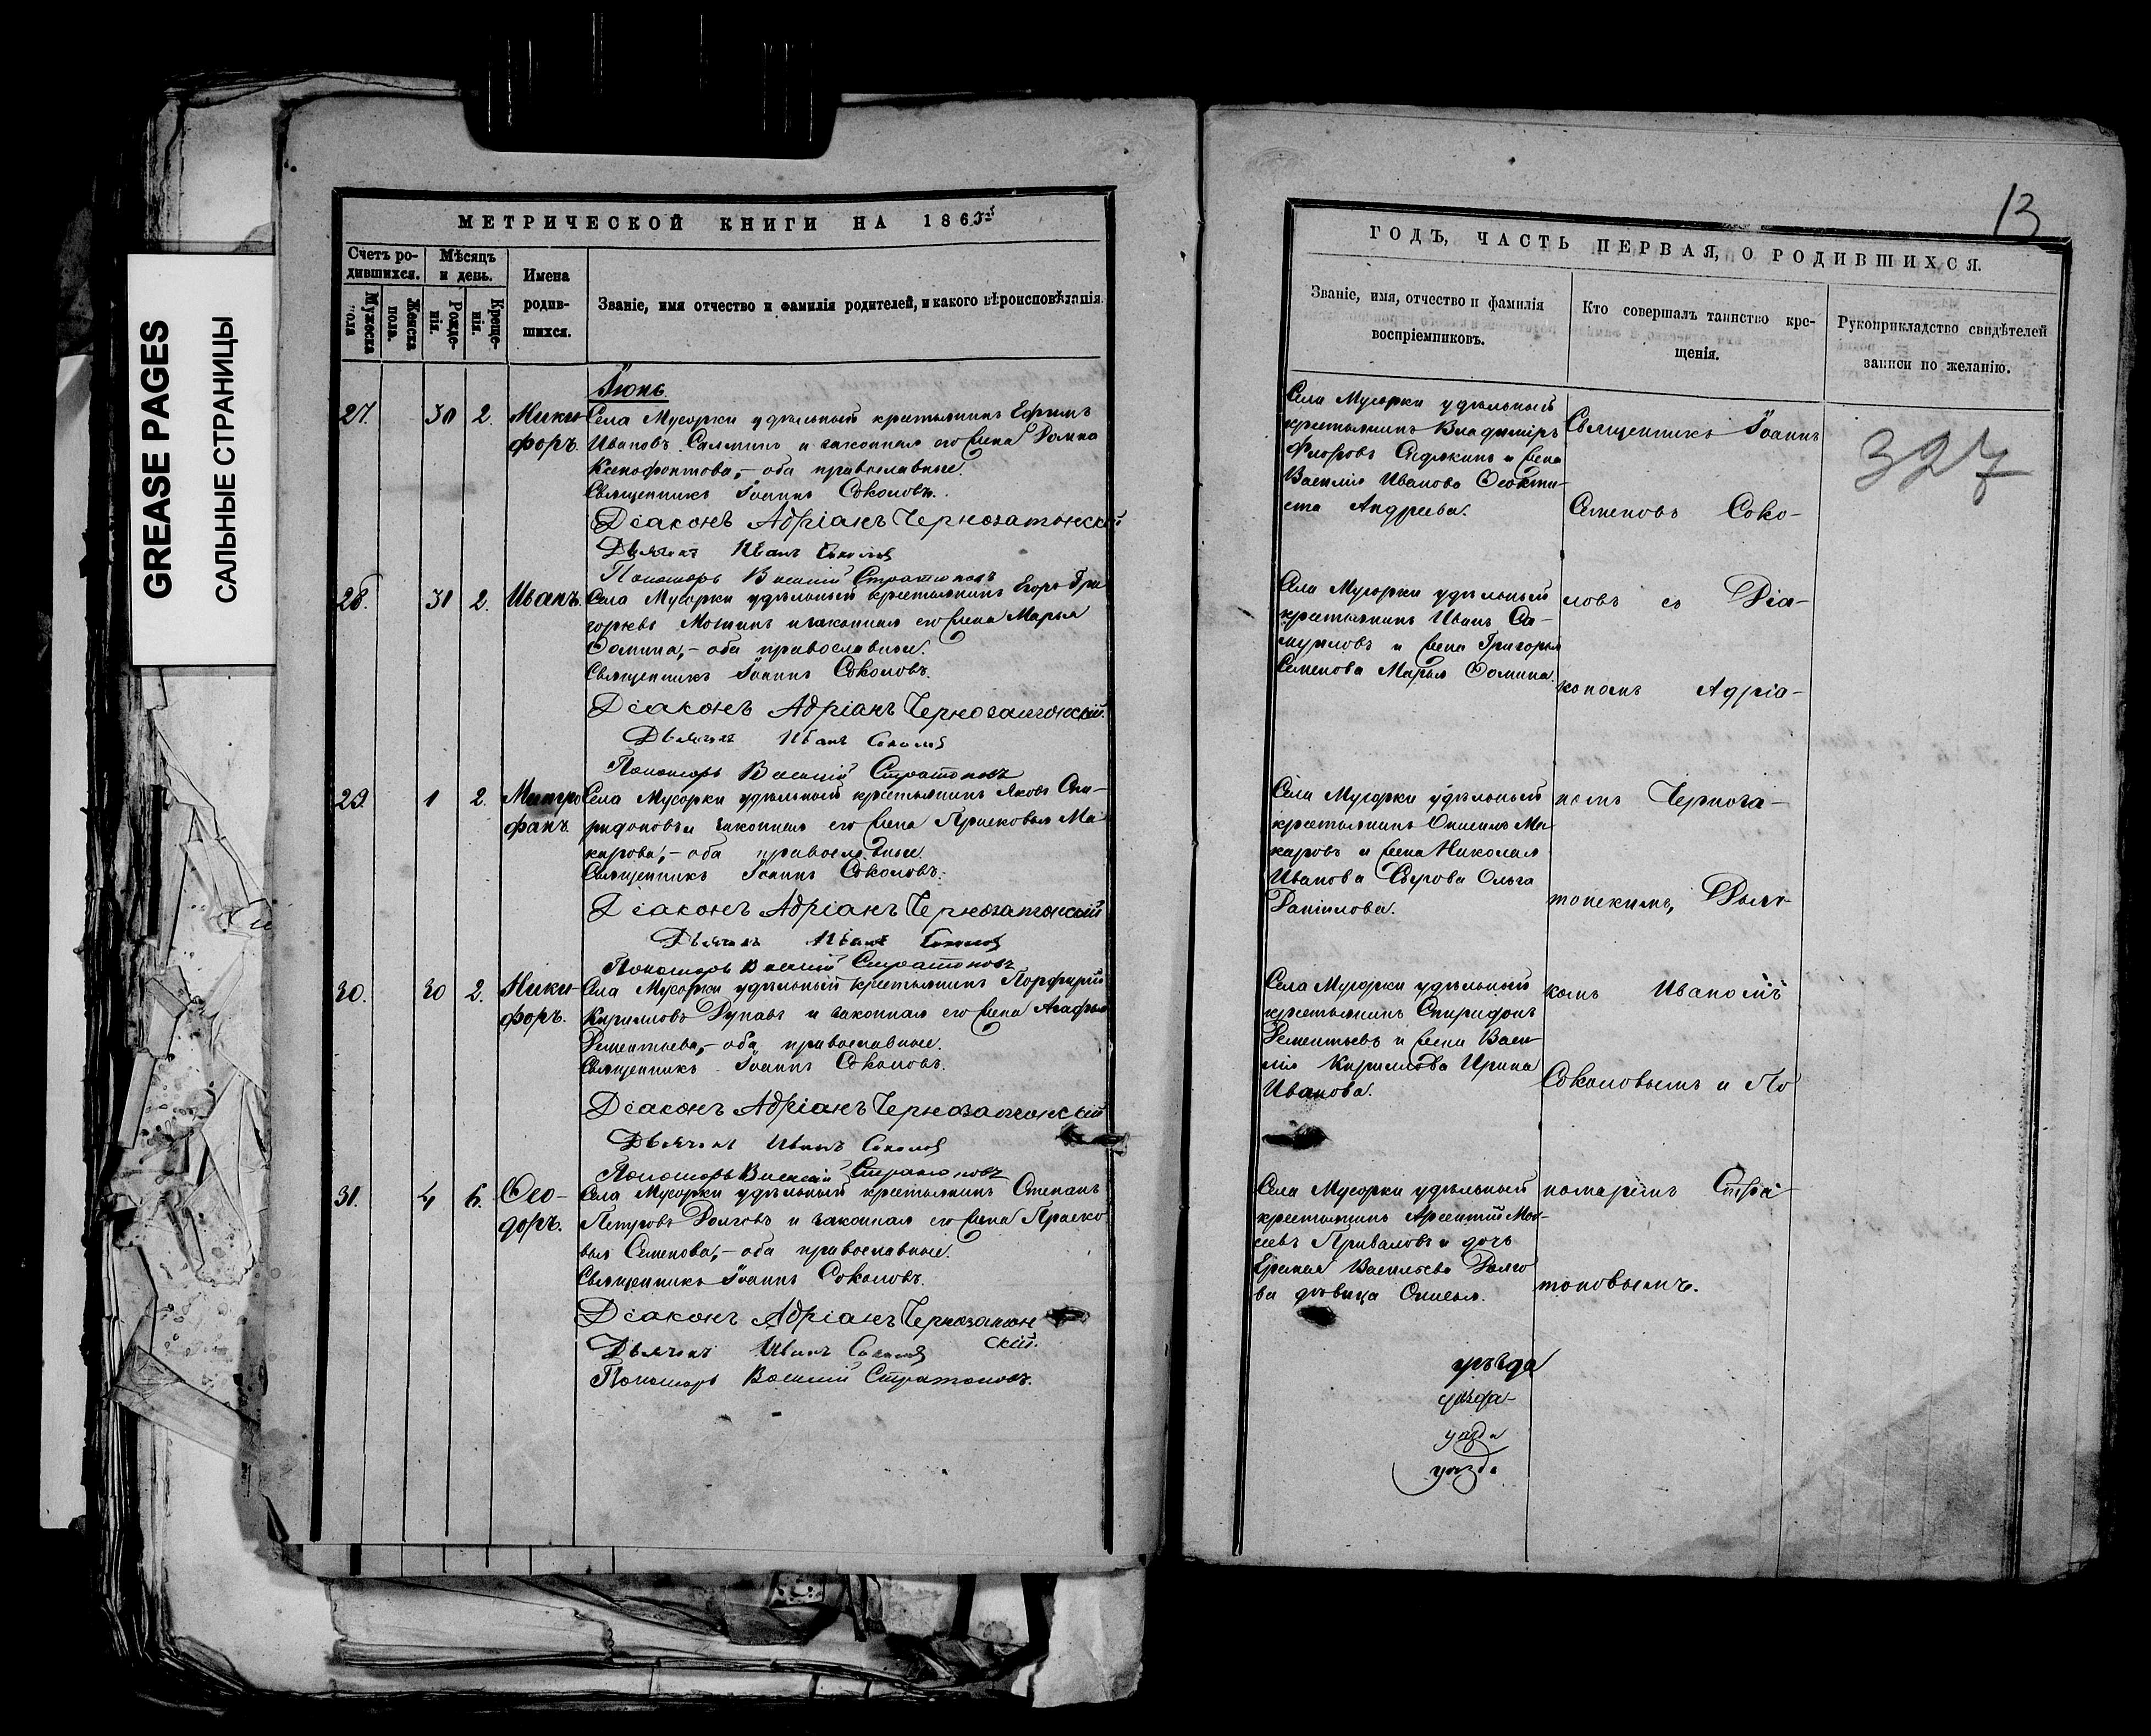 GREASE PAGES
САЛЬНЫЕ СТРАНИЦЫ
МЕТРИЧЕСКОЙ КНИГИ НА 1865й
Счетъ родившихся.
Мужеска пола
Женска пола.
Мѣсяцъ и день.
Рожденія.
Крещенія.
Имена родившихся.
Званіе, имя отчество и фамилія родителей, и какого вѣроисповѣданія.
Іюнь
27. 30 2. Ники- Села Мусорки удѣльный крестьянинъ Ефимъ
форъ. Ивановъ и законная его жена Домна
Ксенофонтова,- оба православные.
Священникъ Іоаннъ Соколовъ.
Діаконъ Адріанъ Чернозатонскій
Дьячекъ Иванъ Соколов
Пономарь Василий Стратоновъ
28. 31 2. Иванъ. Села Мусорки удѣльный крестьянинъ Егоръ Гри
горьевъ Мотинъ и законная его жена Марья
Фомина,- оба православные.
Священникъ Іоаннъ Соколовъ.
Діаконъ Адріанъ Чернозатонскій.
Дьячекъ Иванъ Соколов
Пономарь Василий Стратоновъ
29 1 2. Митро Села Мусорки удѣльный крестьянинъ Яковъ Спи-
фанъ. ридоновъ и законная его жена Прасковья Ма
карова,- оба православные.
Священникъ Іоаннъ Соколовъ.
Діаконъ Адріанъ Чернозатонский
Дьячекъ Иванъ Соколов
Пономарь Василий Стратоновъ
30. 30 2. Ники- Села Мусорки удѣльный крестьянинъ Порфирий
форъ. Кирилловъ Дунаевъ и законная его жена Агафья
Дементьева,- оба православные.
Священникъ Іоаннъ Соколовъ.
Діаконъ Адріанъ Чернозатонский
Дьячекъ Иванъ Соколов
Пономарь Василий Стратоновъ
31. 4 6. Ѳео- Села Мусорки удѣльный крестьянинъ Степанъ
доръ. Петровъ Долговъ и законная его жена Праско
вья Семенова,- оба православные.
Священникъ Іоаннъ Соколовъ.
Діаконъ Адріанъ Чернозатон
скій.
Дьячекъ Иванъ Соколов
Пономарь Василий Стратоновъ.
13
ГОДЪ, ЧАСТЬ ПЕРВАЯ, О РОДИВШИХСЯ.
Званіе, имя, отчество и фамилія
воспріемниковъ.
Кто совершалъ таинство кре-
щенія.
Рукоприкладство свидѣтелей
записи по желанію.
327
Села Мусорки удѣльный
крестьянинъ Владиміръ
Флоровъ и жена
Василія Иванова Ѳеокти-
ста Андреева.
Села Мусорки удѣльный
крестьянинъ Иванъ Са-
муиловъ и жена Григорья
Семенова Марья Фомина.
Села Мусорки удѣльный
крестьянинъ Онисимъ Ма
каровъ и жена Николая
Иванова Ольга
Даніилова.
Села Мусорки удѣльный
крестьянинъ Спиридонъ
Дементьевъ и жена Васи-
лія Кириллова Ирина
Иванова.
Села Мусорки удѣльный
крестьянинъ Арсентій Мои-
сеевъ Приваловъ и дочь
Васильева Долго
ва дѣвица
уѣзда
уѣзда
уѣзда
уѣзда
Священникъ Іоаннъ
Семеновъ Соко-
ловъ съ Діа-
кономъ Адріа-
номъ Черноза-
тонскимъ, Дьяч-
комъ Иваномъ
Соколовымъ и По
номаремъ Стра-
тоновымъ.